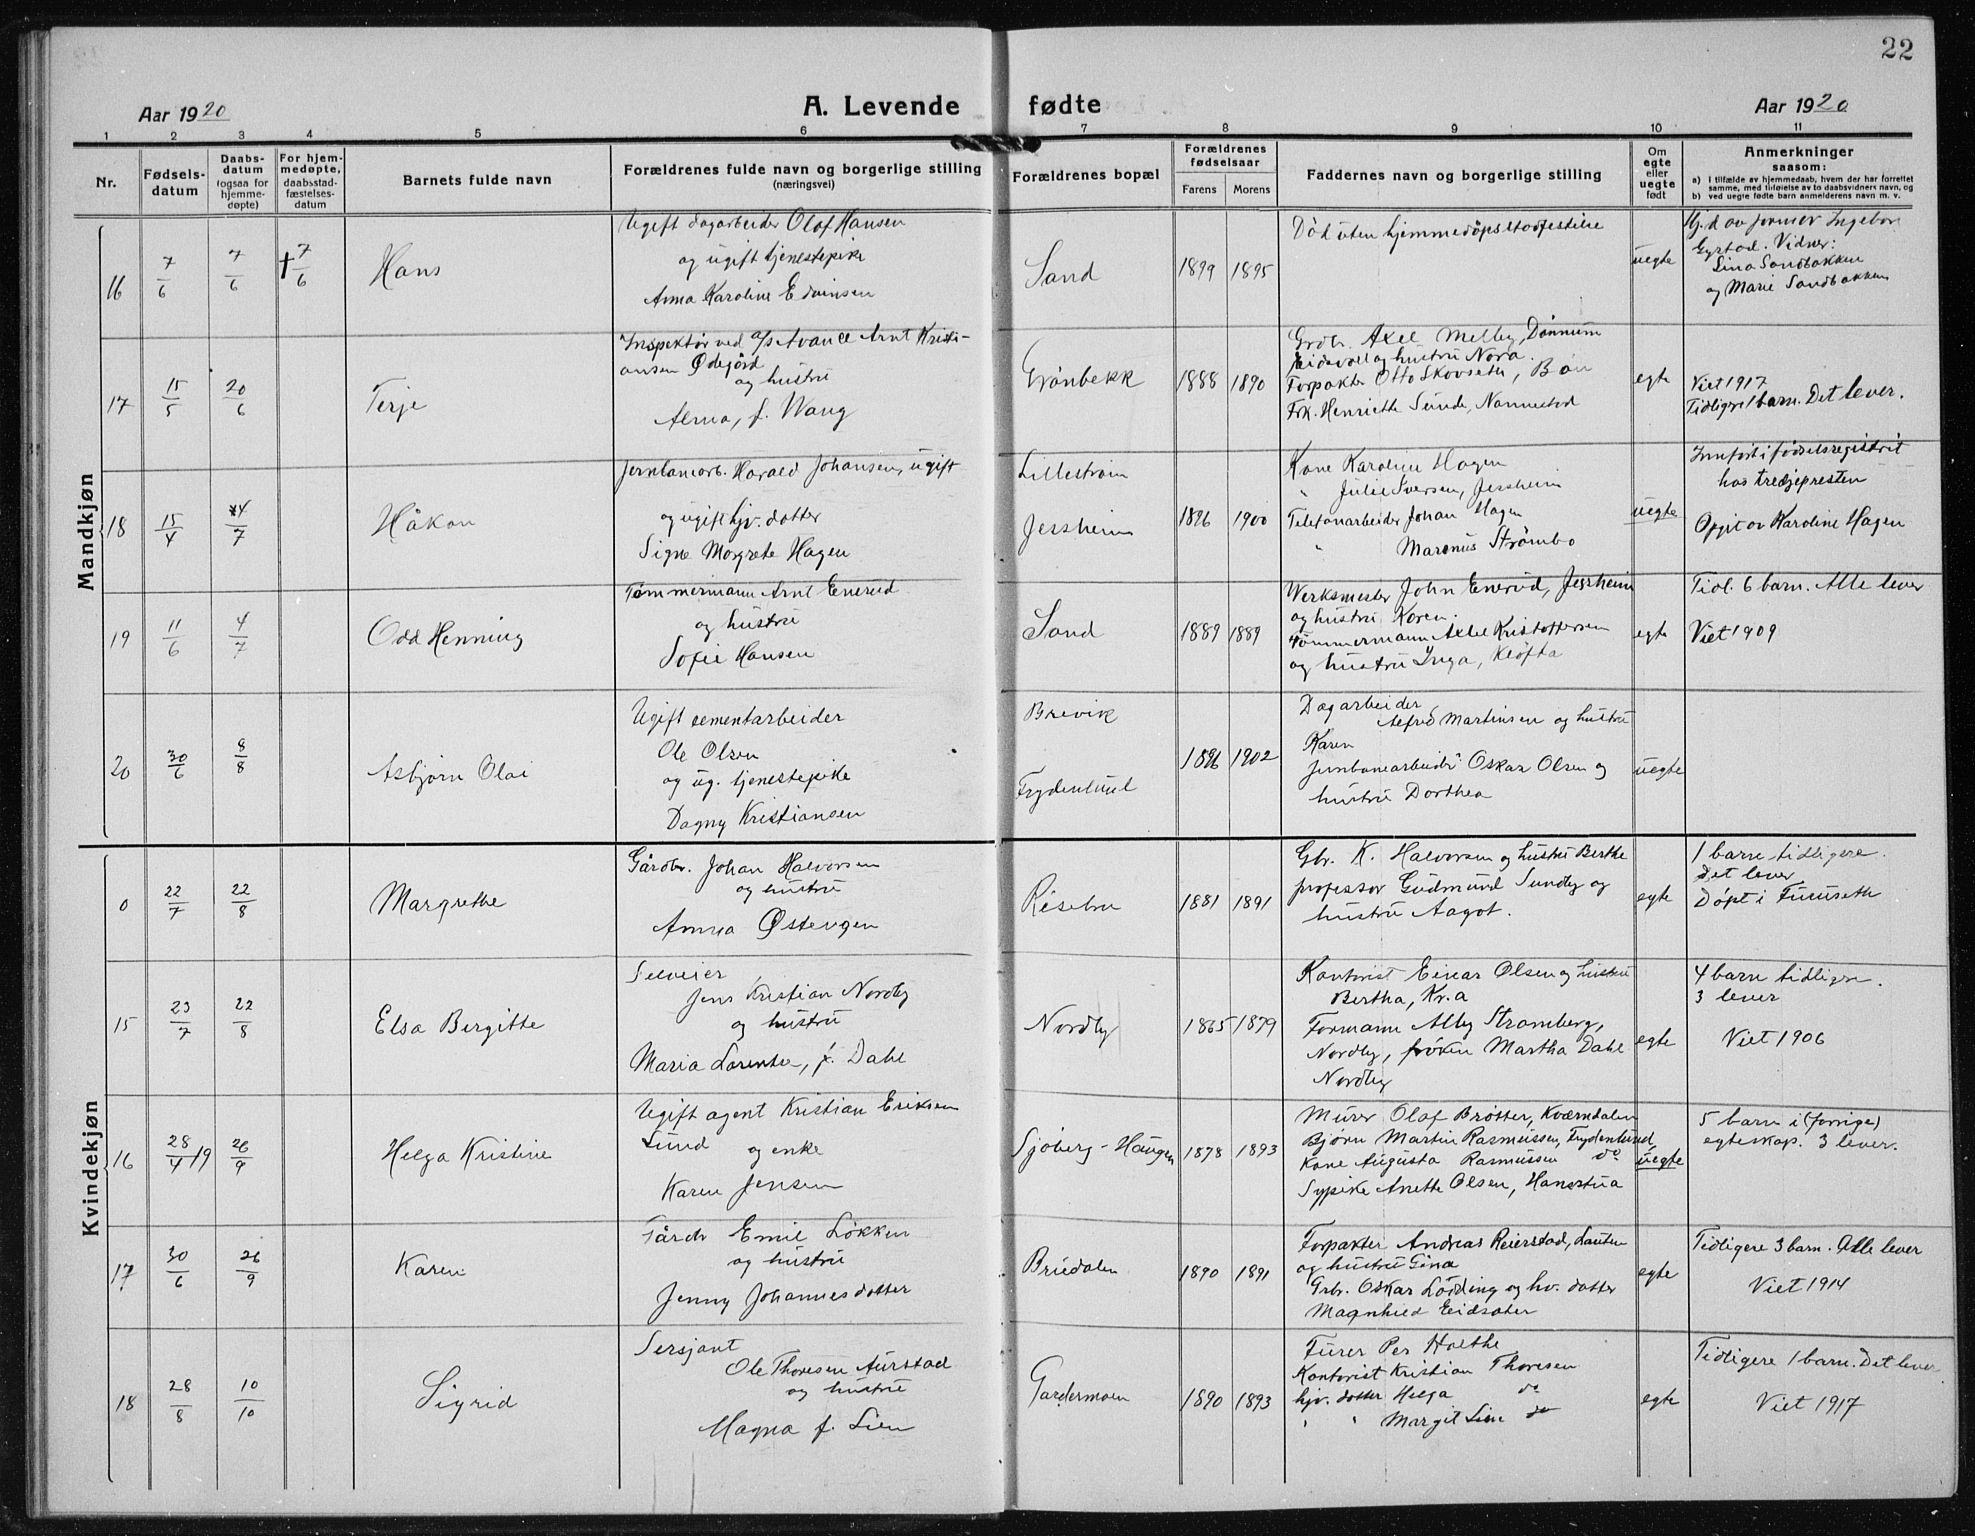 22
Aar 1920
A. Levende fødte
Aar 1920
1 2 3 4 5 6 7 8 9 10 11
Nr.
Fødsels-
datum
Daabs-
datum
(ogsaa for
hjemme-
døpte)
For hjem-
medøpte,
daabsstad-
fæstelses-
datum
Barnets fulde navn
Forældrenes fulde navn og borgerlige stilling
(næringsvei)
Forældrenes bopæl
Forældrenes
fødselsaar
Farens Morens
Faddernes navn og borgerlige stilling
Om
egte
eller
uegte
født
Anmerkninger
saasom:
a) i tilfælde av hjemmedaab, hvem der har forrettet
samme, med tilføielse av to daabsvidners navn, og
b) ved uegte fødte barn anmelderens navn m. v.
Mandkjøn
16 7/6 7/6 † 7/6 Hans
Ugift dagarbeider Olaf Hansen
og ugift tjenestepike
Anna Karoline Edvinsen
Sand 1899 1895
Död uten hjemmedöpsstadfestelse
uegte
Hj.d av jormor Ingeborg
Gystad. Vidner:
Lina Sandbakken
og Marie Sandbakken
17 15/5 20/6 Terje
Inspektör ved A/S Avance Arnt Kristi-
ansen Ødejörd
og hustru
Alma, f. Wang
Grönbekk 1888 1890
Grdbr. Axel Melby, Dönnum
Eidsvoll og hustru Nora.
Forpakter Otto Skovseter, Bön
Frk. Henriette Sunde, Nannestad
egte
Viet 1917
Tidligere 1 barn. Det lever.
18 15/4 4/7 Håkon
Jernbanearb. Harald Johansen, ugift
og ugift hjv. datter
Signe Margrete Hagen
Lillestrøm
Jessheim
1896 1900
Kone Karoline Hagen
" Julie Iversen, Jessheim
Telefonarbeider Johan Hagen
" Marenus Strömbo
uegte
Innfört i födselsregistret
hos tredjepresten
Opgit av Karoline Hagen
19 11/6 4/7 Odd Henning
Tömmermann Arnt Enerud
og hustru
Sofie Hansen
Sand 1889 1889
Werksmester John Enerud, Jessheim
og hustru Karen.
Tömmermann Axel Kristoffersen
og hustru Inga, Klöfta
egte
Tidl. 6 barn. Alle lever
Viet 1909
20 30/6 8/8 Asbjörn Olai
Ugift sementarbeider
Ole Olsen
og ug. tjenestepike
Dagny Kristiansen
Brevik
Frydenlund
1896 1902
Dagarbeider
Alfred Martinsen og hustru
Karen
Jernbanearbeider Oskar Olsen og
hustru Dorthea
uegte
Kvindekjøn
0 22/7 22/8 Margrethe
Gårdbr. Johan Halvorsen
og hustru
Anna Østengen
Risebru 1881 1891
Gbr. K. Halvorsen og hustru Berthe
professor Gudmund Sundby og
hustru Aagot.
egte
1 barn tidligere.
Det lever
Döpt i Furuseth
15 23/7 22/8 Elsa Birgitte
Selveier
Jens Kristian Nordby
og hustru
Maria Lorentse, f. Dahl
Nordby 1865 1879
Kontorist Einar Olsen og hustru
Bertha, Kr.a
Formann Alby Stramberg,
Nordby, fröken Martha Dahl
Nordby
egte
4 barn tidligre.
3 lever
Viet 1906
16 28/4 19 26/9 Helga Kristine
Ugift agent Kristian Eriksen
Lund og enke
Karen Jensen
Sjöberg-Haugen 1878 1893
Murer Olaf Brötter, Kværndalen
Björn Martin Rasmussen, Frydenlund
Kone Augusta Rasmussen do
Sypike Anette Olsen, Hanestua
uegte
5 barn i (forrige)
egteskap. 3 lever.
17 30/6 26/9 Karen
Gårdbr Emil Lökken
og hustru
Jenny Johannesdatter
Bruedalen 1890 1891
Forpakter Andreas Reierstad, Lauten
og hustru Gina
Grbr. Oskar Lödding og hv. datter
Magnhild Eidsater
egte
Tidligere 3 barn. Alle lever
Viet 1914
18 28/8 10/10 Sigrid
Sersjant
Ole Thoresen Aurstad
og hustru
Magna f. Lien
Gardermoen 1890 1893
Furer Per Holthe
Kontorist Kristian Thoresen
hjv. datter Helga do
" " Margit Lien do
egte
Tidligere 1 barn. Det lever
Viet 1917